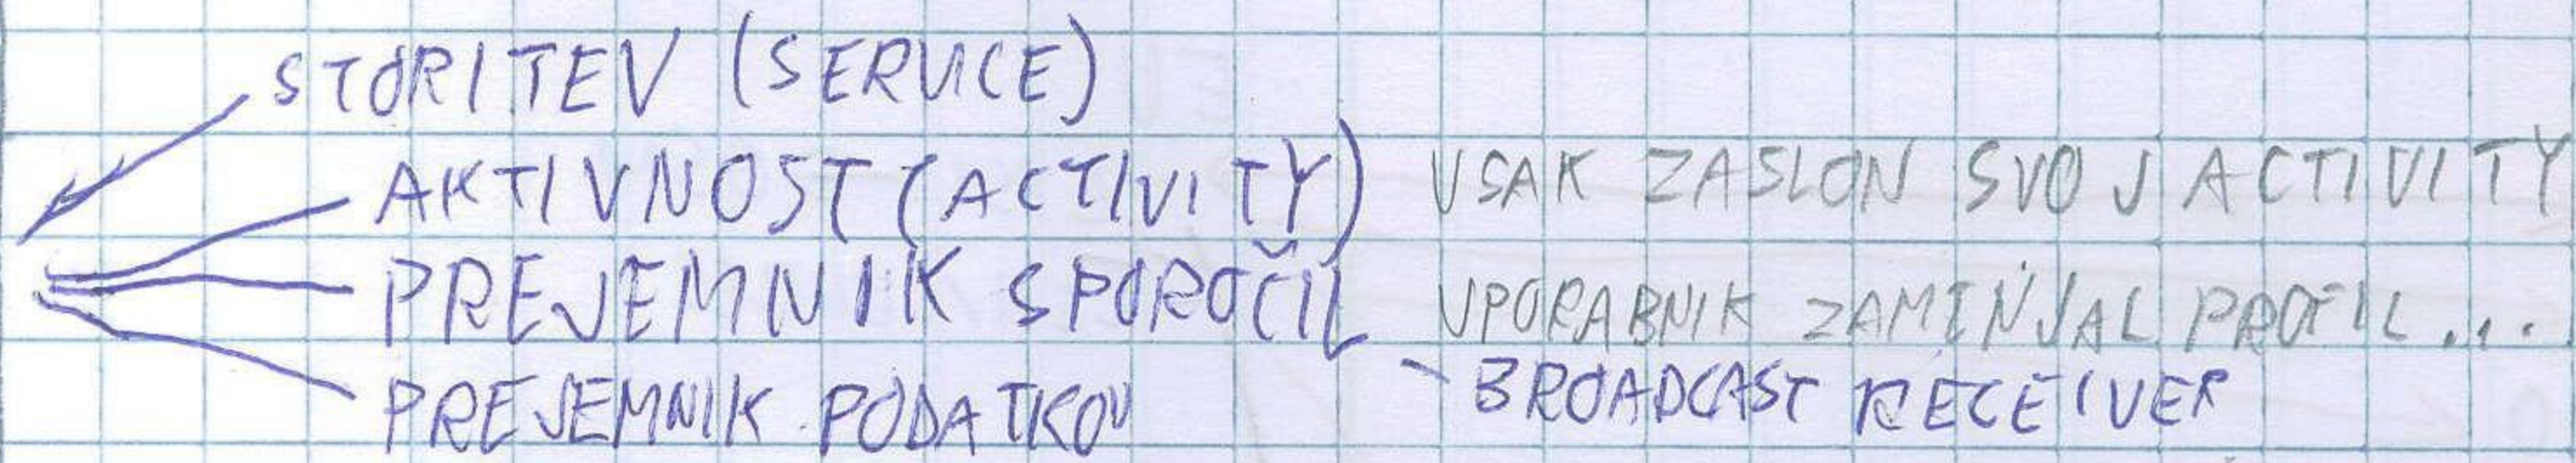 STORITEV (SERVICE)
AKTIVNOST (ACTIVITY) VSAK ZASLON SVOJ ACTIVITY
PREJEMNIK SPOROČIL UPORABNIK ZAMENJAL PROFIL...
- BROADCAST RECEIVER
PREJEMNIK PODATKOV